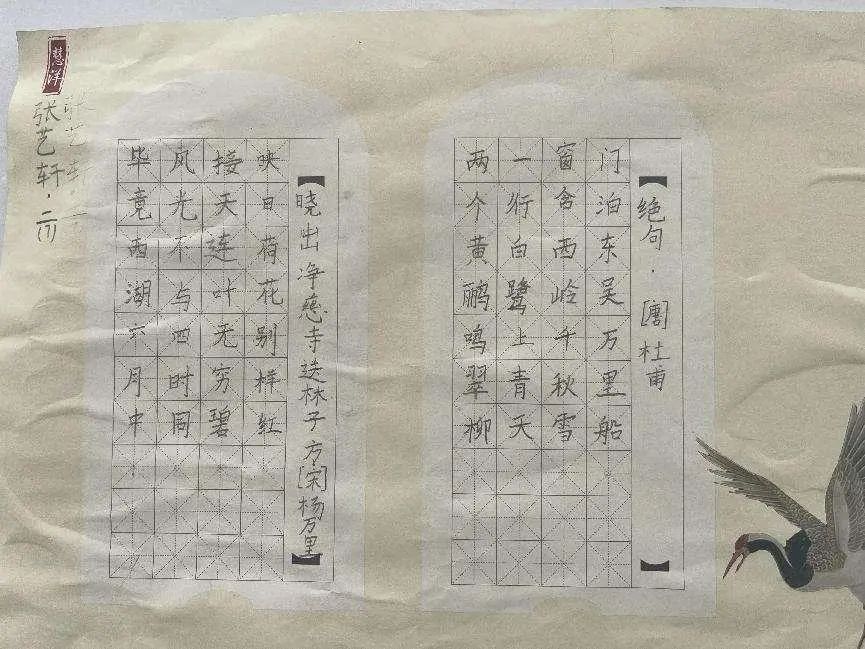 绝句·[唐]杜甫
两个黄鹂鸣翠柳
一行白鹭上青天
窗含西岭千秋雪
门泊东吴万里船。
晓出净慈寺送林子方[宋]杨万里
毕竟西湖六月中，
风光不与四时同。
接天莲叶无穷碧，
映日荷花别样红。
慧洋
张艺轩·二(1)
张艺轩·二